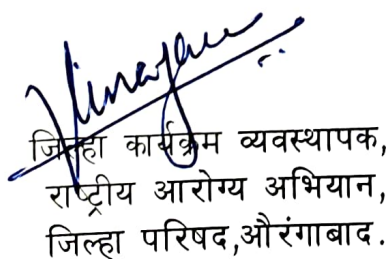 जिल्हा कार्यक्रम व्यवस्थापक,
राष्ट्रीय आरोग्य अभियान,
जिल्हा परिषद,औरंगाबाद.